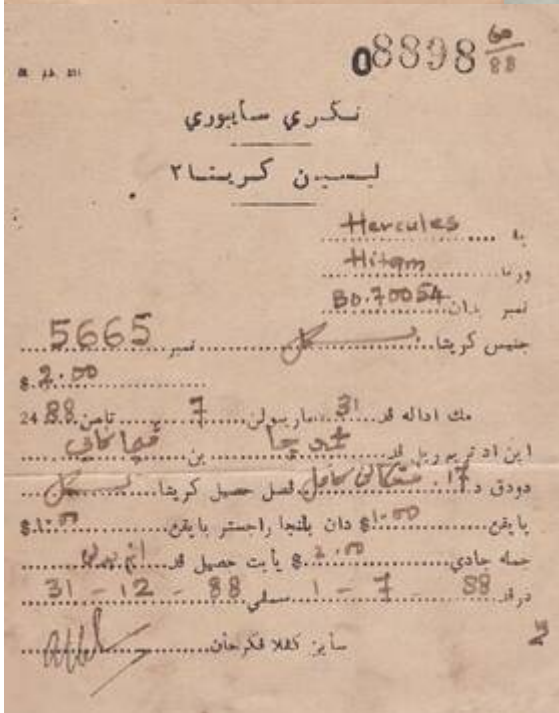 08898 60/88
نݢري سايبوري
ليسين كريتا٢
Hercules
ورنا Hitam
نمبر بدان Bo.70054
جنيس كريتا بسيكل نمبر 5665
$ 2.00
مك اداله ڤد 31 هاريبولن 7 تاهن 88 24
اين اد تريم ريل ڤد بن
دودق د 17 فصل حصيل كريتا بسيكل
بايقن $1.00 دان بلنجا راجستر بايقن $1.00
جمله جادي $ 2.00 يايت حصيل ڤد انم بولن
درڤد 1 - 7 - 88 سمڤي 31 - 12 - 88
ساين كڤلا ڤكرجأن